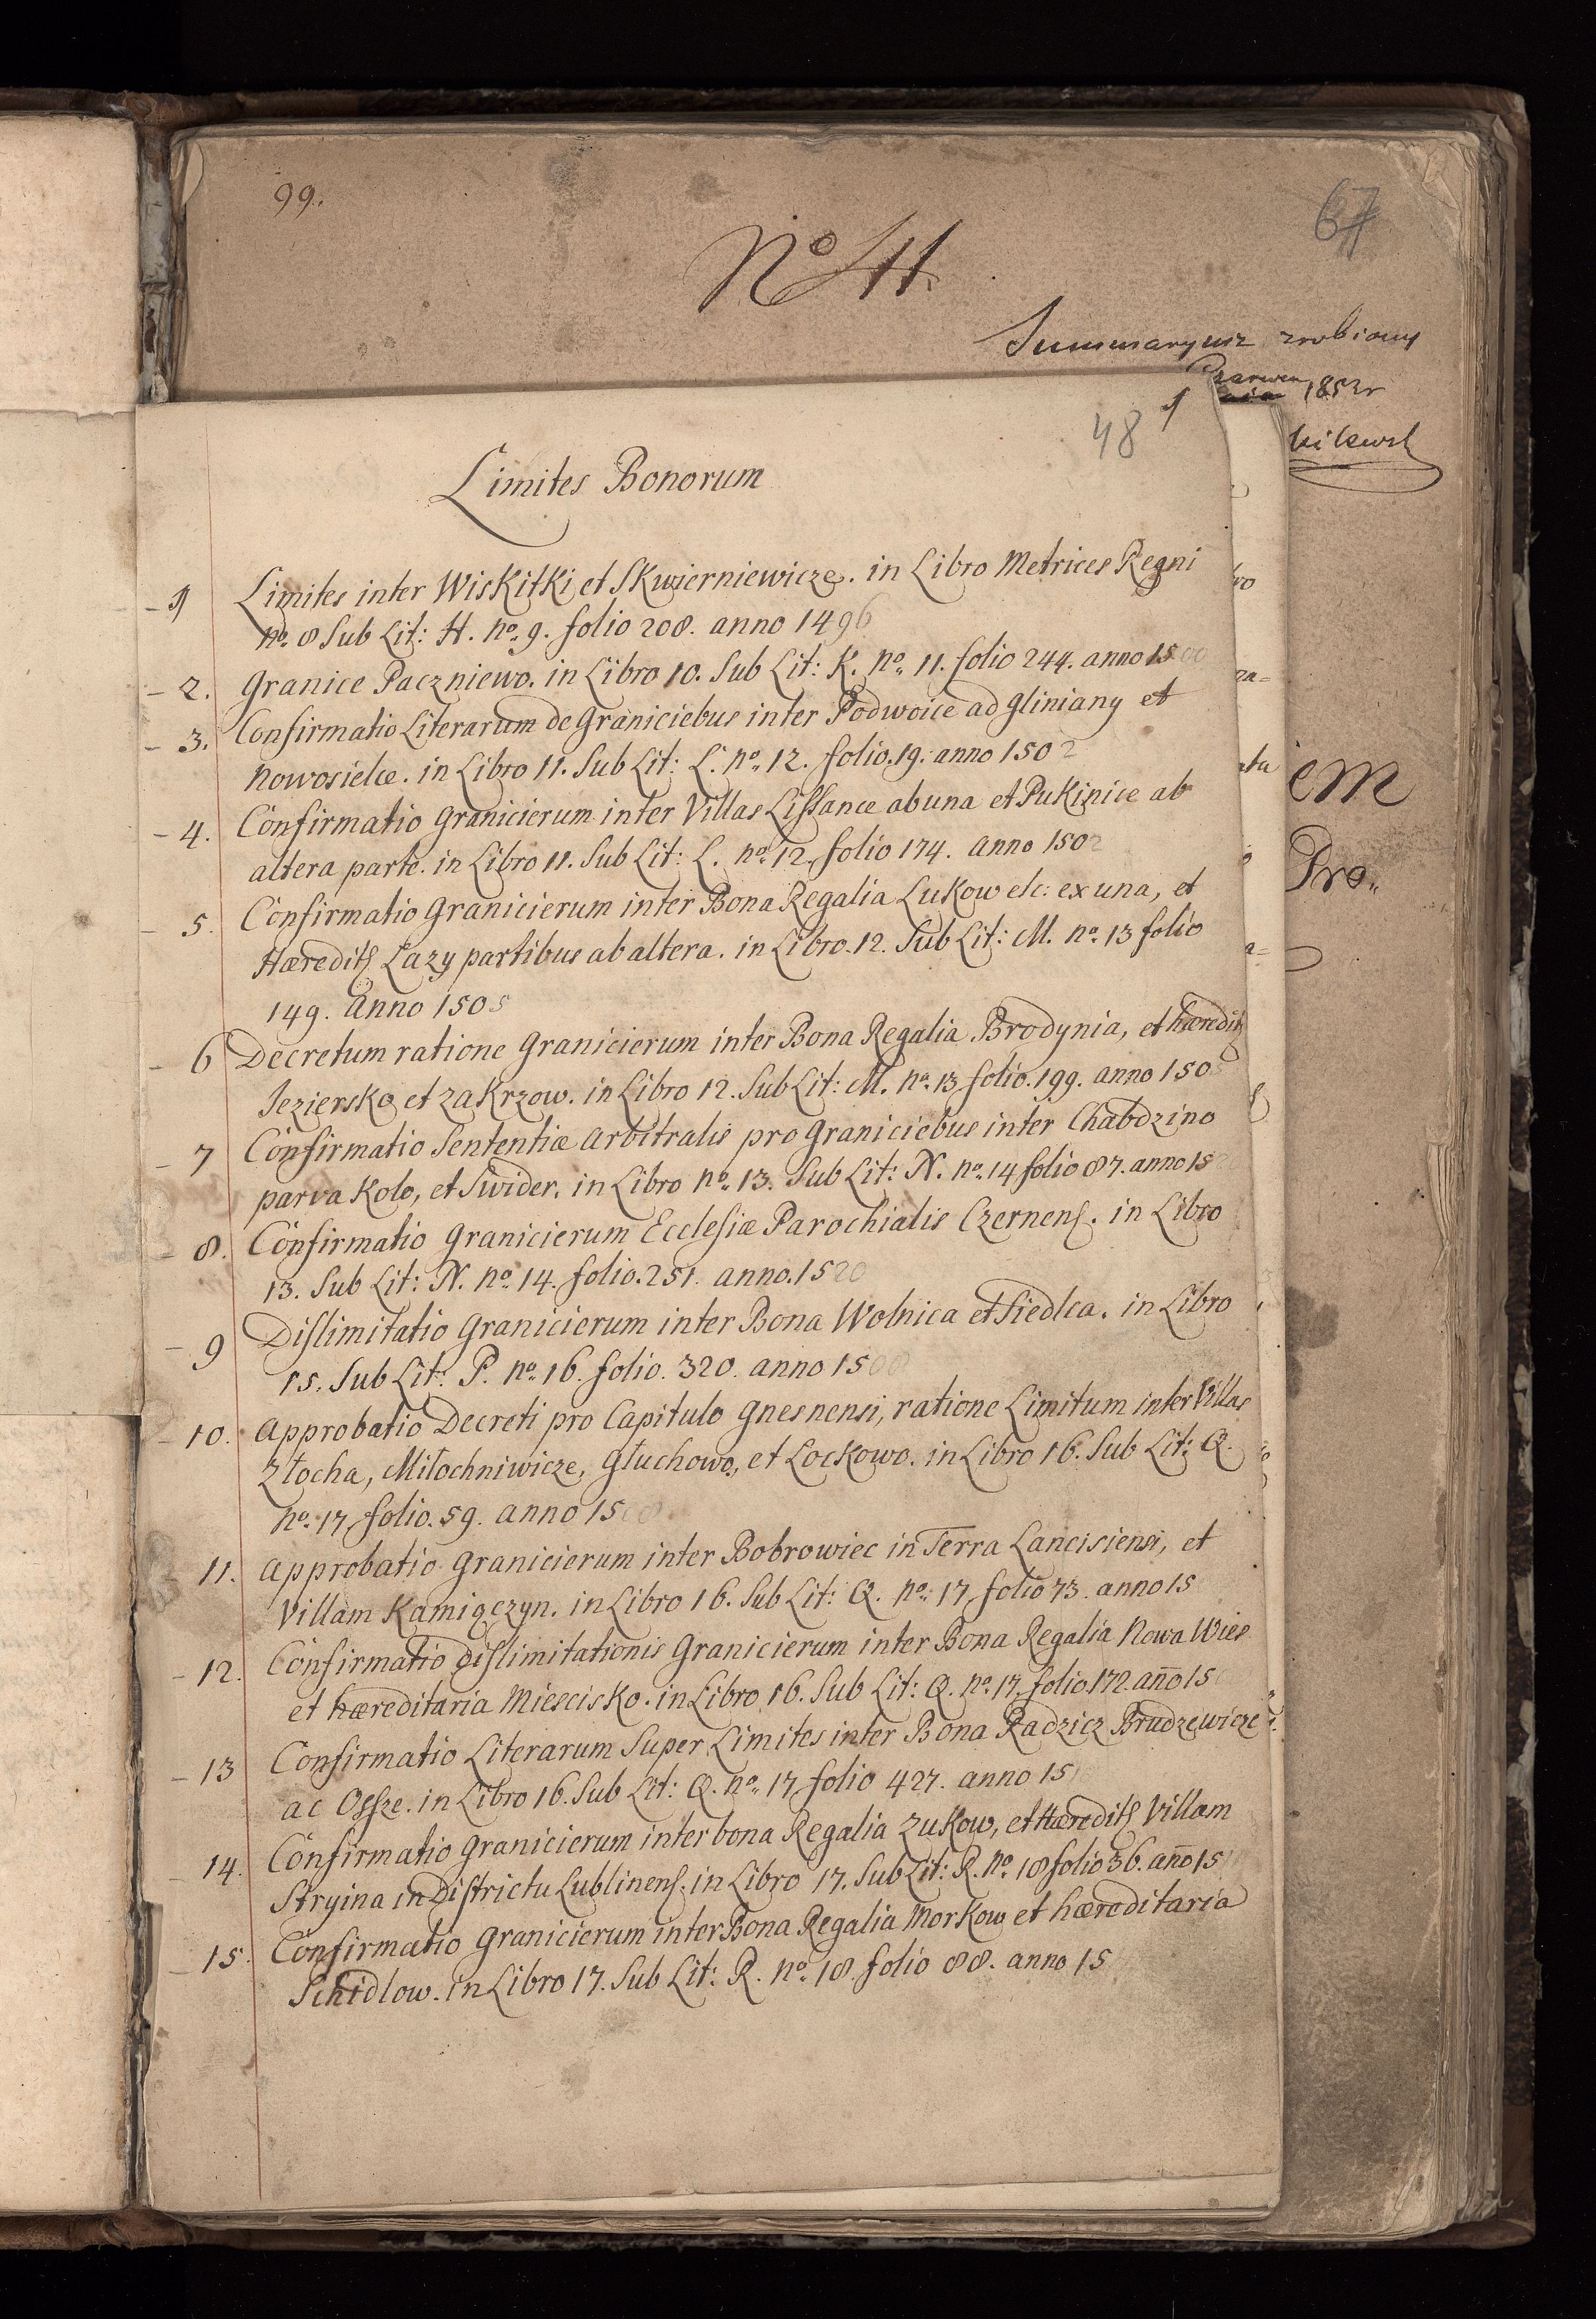 99.
67
No 41.
Summaryusz zrobiony
Czerwca 1853r
48 1
Limites Bonorum
1 Limites inter WisKitKi et SKwierniewicze. in Libro Metrices Regni
no. 8 Sub Lit: H. no. 9. folio 208. anno 1496
2. Granice Paczniewo. in Libro 10. Sub Lit: K. no. 11. folio 244. anno 1500
3. Confirmatio Literarum de Graniciebus inter Podwoice ad Gliniany et
Nowosielce. in Libro 11. Sub Lit: L. no. 12. folio. 19. anno 1502
4. Confirmatio Granicierum inter Villas Lissance ab una et PuKinice ab
altera parte. in Libro 11. Sub Lit: L. no. 12. folio 174. anno 1502
5. Confirmatio Granicierum inter Bona Regalia Lukow etc: ex una, et
Hæredit. Lazy partibus ab altera. in Libro. 12. Sub Lit: M. no. 13 folio
149. anno 1505
6 Decretum ratione Granicierum inter Bona Regalia Brodynia, et hæredit
Jeziersko et zaKrzow. in Libro 12. Sub Lit: M. no. 13 folio. 199. anno 1505
7 Confirmatio Sententiæ arbitralis pro Graniciebus inter Chabdzino
parva Kolo, et Swider. in Libro no. 13. Sub Lit: N. no. 14 folio 87. anno 15
8. Confirmatio Granicierum Ecclesiæ Parochialis Czernens. in Libro
13. Sub Lit: N. no. 14. folio. 251. anno. 1520
9 Dislimitatio Granicierum inter Bona Wolnica et Siedlca. in Libro
15. Sub Lit: P. no. 16. folio. 320. anno 1508
10. approbatio Decreti pro Capitulo Gnesnensi, ratione Limitum inter Villas
Złocha, Miłochniwicze, Głuchowo, et LocKowo. in Libro 16. Sub Lit: Q.
no. 17 folio. 59. anno 1508
11. approbatio Granicierum inter Bobrowiec in Terra Lancisiensi, et
Villam Kamięczyn. in Libro 16. Sub Lit: Q. no. 17 folio 73. anno 15
12. Confirmatio Dislimitationis Granicierum inter Bona Regalia Nowa Wies
et hæreditaria MiescisKo. in Libro 16. Sub Lit: Q. no. 17. folio 172. año 15
13 Confirmatio Literarum Super Limites inter Bona Radzicz Brudzewicze
ac Ossze. in Libro 16. Sub Lit: Q. no. 17 folio 427. anno 15
14. Confirmatio Granicierum inter bona Regalia ZuKow, et Hæredit. Villam
Stryina in Districtu Lublinens. in Libro 17. Sub Lit: R. no. 18 folio 36. año 15
15. Confirmatio Granicierum inter Bona Regalia MorKow et hæreditaria
Schidlow. in Libro 17. Sub Lit: R. no. 18. folio 88. anno 15
em
Pro.